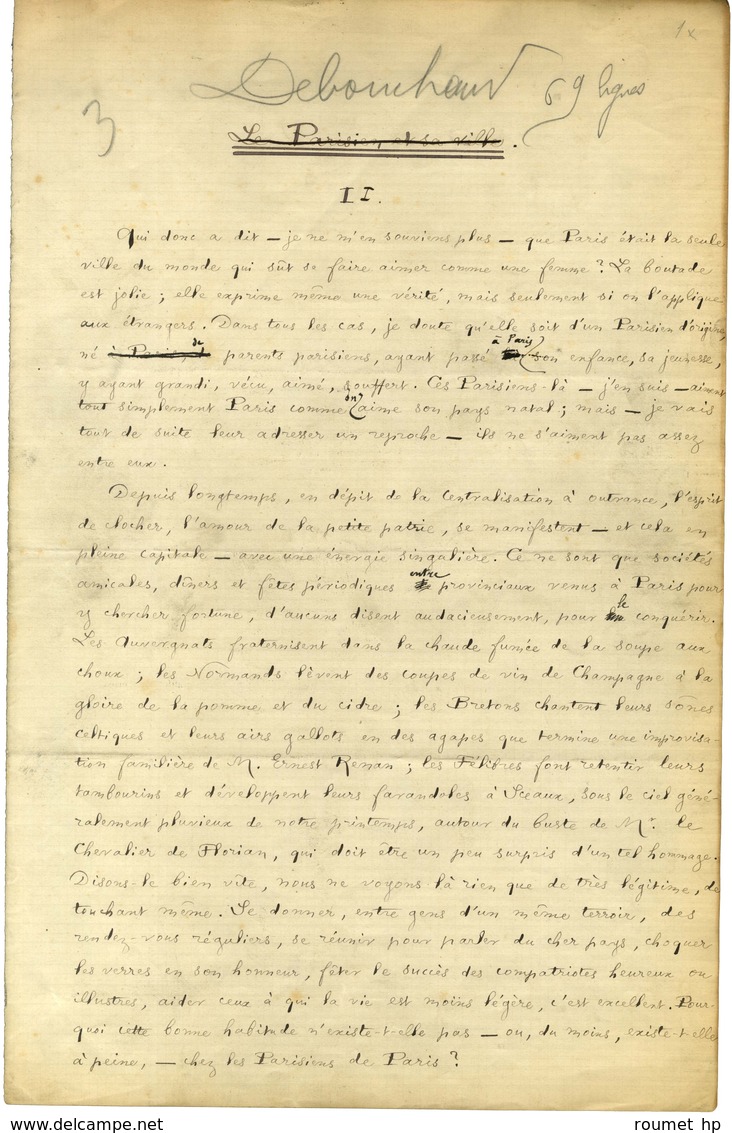 1x
Debouchaud 69 lignes
3
Le Parisien et sa ville.
II.
Qui donc a dit — je ne m'en souviens plus — que Paris était la seule
ville du monde qui sût se faire aimer comme une femme ? La boutade
est jolie ; elle exprime même une vérité, mais seulement si on l'applique
aux étrangers. Dans tous les cas, je doute qu'elle soit d'un Parisien d'origine,
né à Paris, de parents parisiens, ayant passé à Paris son enfance, sa jeunesse,
y ayant grandi, vécu, aimé, souffert. Ces Parisiens-là — j'en suis — aiment
tout simplement Paris comme on aime son pays natal ; mais — je vais
tout de suite leur adresser un reproche — ils ne s'aiment pas assez
entre eux.
Depuis longtemps, en dépit de la centralisation à outrance, l'esprit
de clocher, l'amour de la petite patrie, se manifestent — et cela en
pleine capitale — avec une énergie singulière. Ce ne sont que sociétés
amicales, dîners et fêtes périodiques entre provinciaux venus à Paris pour
y chercher fortune, d'aucuns disent audacieusement, pour le conquérir.
Les Auvergnats fraternisent dans la chaude fumée de la soupe aux
choux ; les Normands lèvent des coupes de vin de Champagne à la
gloire de la pomme et du cidre ; les Bretons chantent leurs sônes
celtiques et leurs airs gallots en des agapes que termine une improvisa-
tion familière de M. Ernest Renan ; les Félibres font retentir leurs
tambourins et développent leurs farandoles à Sceaux, sous le ciel géné-
ralement pluvieux de notre printemps, autour du buste de Mr. le
Chevalier de Florian, qui doit être un peu surpris d'un tel hommage.
Disons-le bien vite, nous ne voyons là rien que de très légitime, de
touchant même. Se donner, entre gens d'un même terroir, des
rendez-vous réguliers, se réunir pour parler du cher pays, choquer
les verres en son honneur, fêter le succès des compatriotes heureux ou
illustres, aider ceux à qui la vie est moins légère, c'est excellent. Pour-
quoi cette bonne habitude n'existe-t-elle pas — ou, du moins, existe-t-elle
à peine, — chez les Parisiens de Paris ?
delcampe.net
roumet hp